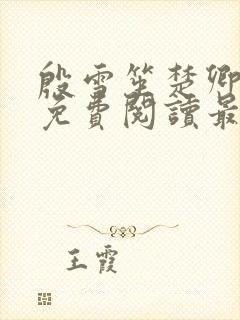 殷雪笙楚卿
免費閱讀最
王霞